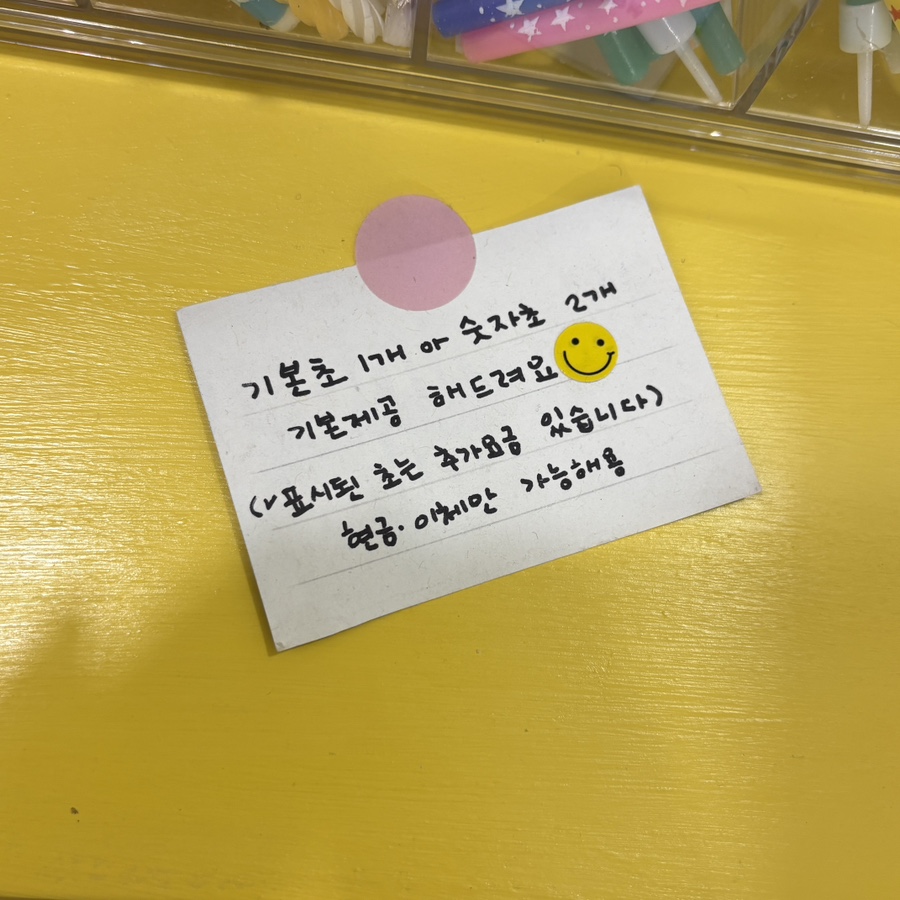 기본초 1개 or 숫자초 2개
기본제공 해드려요
(✓표시된 초는 추가요금 있습니다)
현금·이체만 가능해용